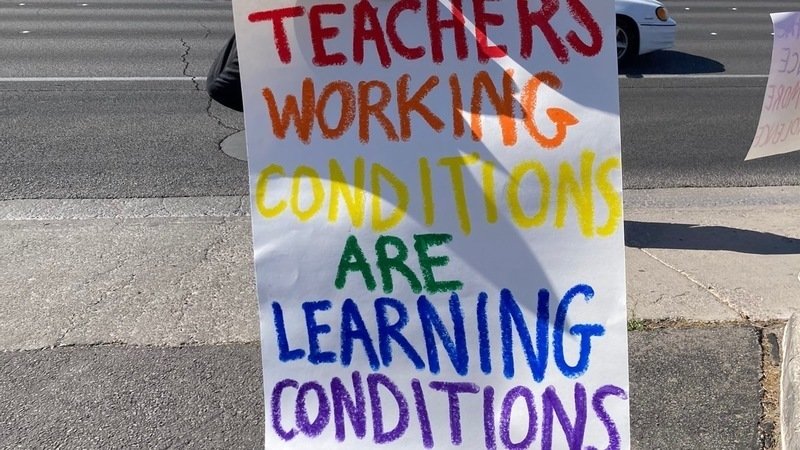 TEACHERS
WORKING
CONDITIONS
ARE
LEARNING
CONDITIONS